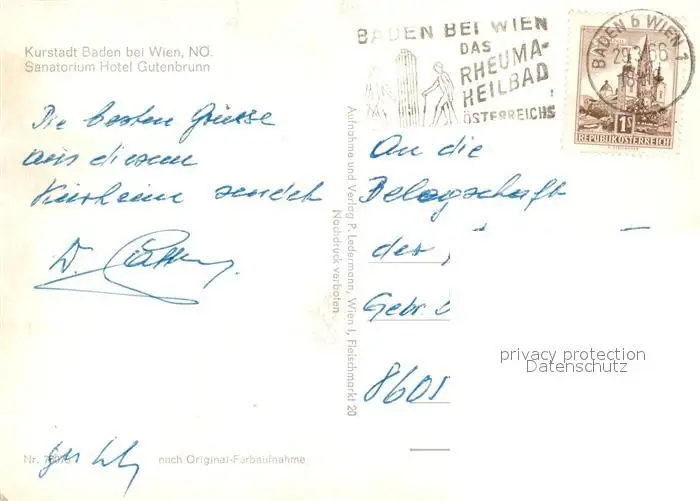 Kurstadt Baden bei Wien, NÖ.
Sanatorium Hotel Gutenbrunn
BADEN BEI WIEN
DAS
RHEUMA-
HEILBAD
ÖSTERREICHS
BADEN b WIEN 1
29.3.66
1 S
REPUBLIK ÖSTERREICH
Die besten Grüsse
aus diesem
Kurheim sendet
Aufnahme und Verlag P. Ledermann, Wien I, Fleischmarkt 20
Nachdruck verboten
An die
Belegschaft
der
Gebr.
8601
privacy protection
Datenschutz
Nr.
nach Original-Farbaufnahme